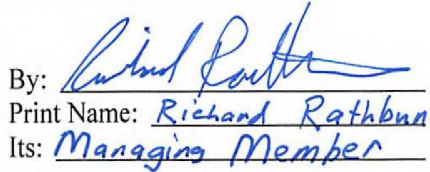 By: Richard Rathbun
Print Name: Richard Rathbun
Its: Managing Member